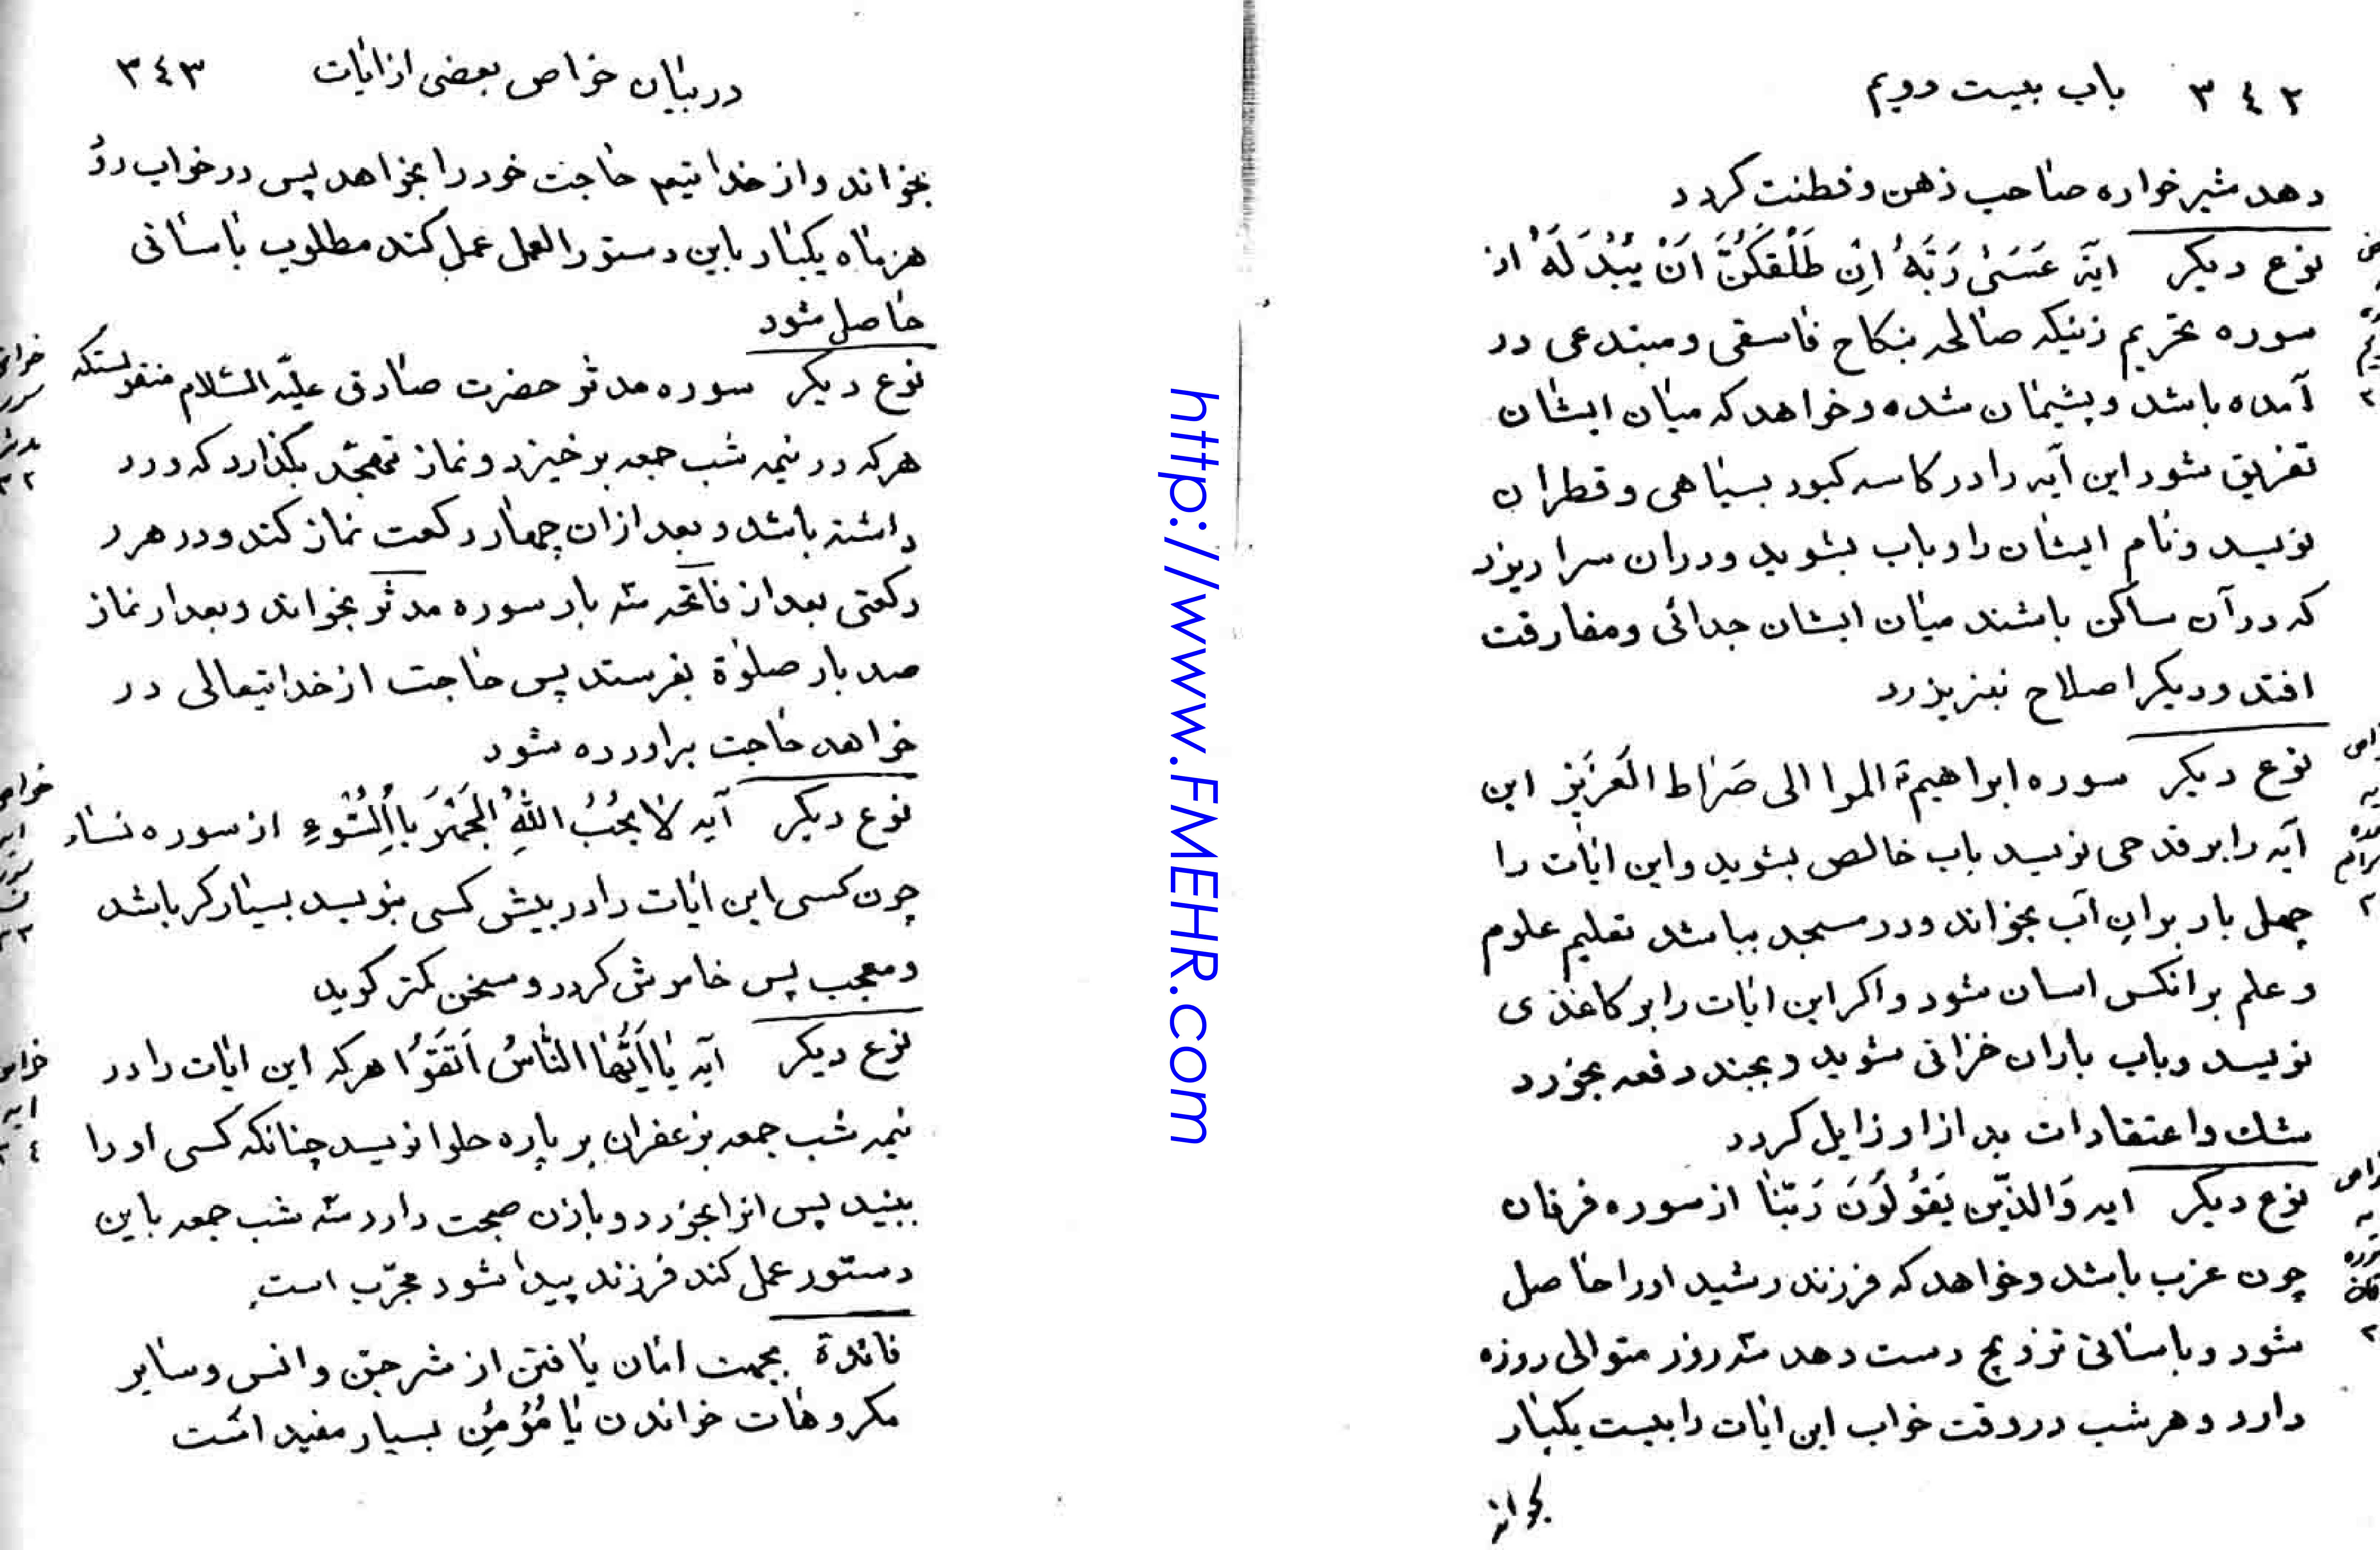 ۳۴۲ باب بیست دویم
دهد شیر خواره صاحب ذهن و فطنت کردد
نوع دیکر ایة عَسَىٰ رَبُّهُ اِنْ طَلَّقَكُنَّ اَنْ یُبْدِلَهُ از
سوره تحریم زنیکه صالحه بنکاح فاسقی و مبتدعی در
آمده باشد و پشیمان شده و خواهد که میان ایشان
تفریق شود این آیه را در کاسه کبود بسیاهی و قطران
نویسد و نام ایشان را و باب بشوید و در ان سرا ریزد
که در آن ساکن باشند میان ایشان جدائی و مفارقت
افتد و دیکر اصلاح نپزیزد
نوع دیکر سوره ابراهیم الی صَراط العَزیز این
آیه را بر قدحی نویسد باب خالص بشوید و این ایات را
چهل بار بران آب بخواند و در مسجد بباشد تعلیم علوم
و علم بر انکس اسان شود و اکر این ایات را بر کاغذی
نویسد و باب باران خزانی شوید و بچند دفعه بخورد
شك و اعتقادات بد از او زایل کردد
نوع دیکر ایه وَالذّین یَقُولُونَ رَبَّنا از سوره فرقان
چون عزب باشد و خواهد که فرزند رشید اورا حاصل
شود و باسانی تزویج دست دهد سه روز متوالی روزه
دارد و هر شب در وقت خواب این ایات را بیست یکبار
بخواند
در بیان خواص بعضی از ایات ۳۴۳
بخواند و از خدا حاجت خود را بخواهد پس در خواب روُ
هر ماه یکبار باین دستور العمل عمل کند مطلوب باسانی
حاصل شود
نوع دیکر سوره مدثر حضرت صادق علیه السّلام منقولستکه
هر که در نیمه شب جمعه بر خیزد و نماز تهجّد بکذارد که ورد
داشته باشد و بعد از ان چهار رکعت نماز کند و در هر
رکعتی بعد از فاتحه سه بار سوره مدثر بخواند و بعد از نماز
صد بار صلوٰة بفرستد پس حاجت از خدایتعالی در
خواهد حاجت براورده شود
نوع دیکر آیه لا یُحِبُّ اللهُ الجَهْرَ بِالسُّوءِ از سوره نساء
چون کسی این ایات را در پیش کسی بنویسد بسیار کر باشد
و معجب پس خاموش کردد و سخن کمتر کوید
نوع دیکر آیه یا اَیُّهَا النّاسُ اتَّقوُا هر که این ایات را در
نیمه شب جمعه بزعفران بر پاره حلوا نویسد چنانکه کسی او را
نبیند پس انرا بخورد و با زن صحبت دارد سه شب جمعه باین
دستور عمل کند فرزند پیدا شود مجرّب است
فائدة بجهت امان یافتن از شر جن و انس و سایر
مکروهات خواندن یا مُؤمِن بسیار مفید است
http://www.FMEHR.com